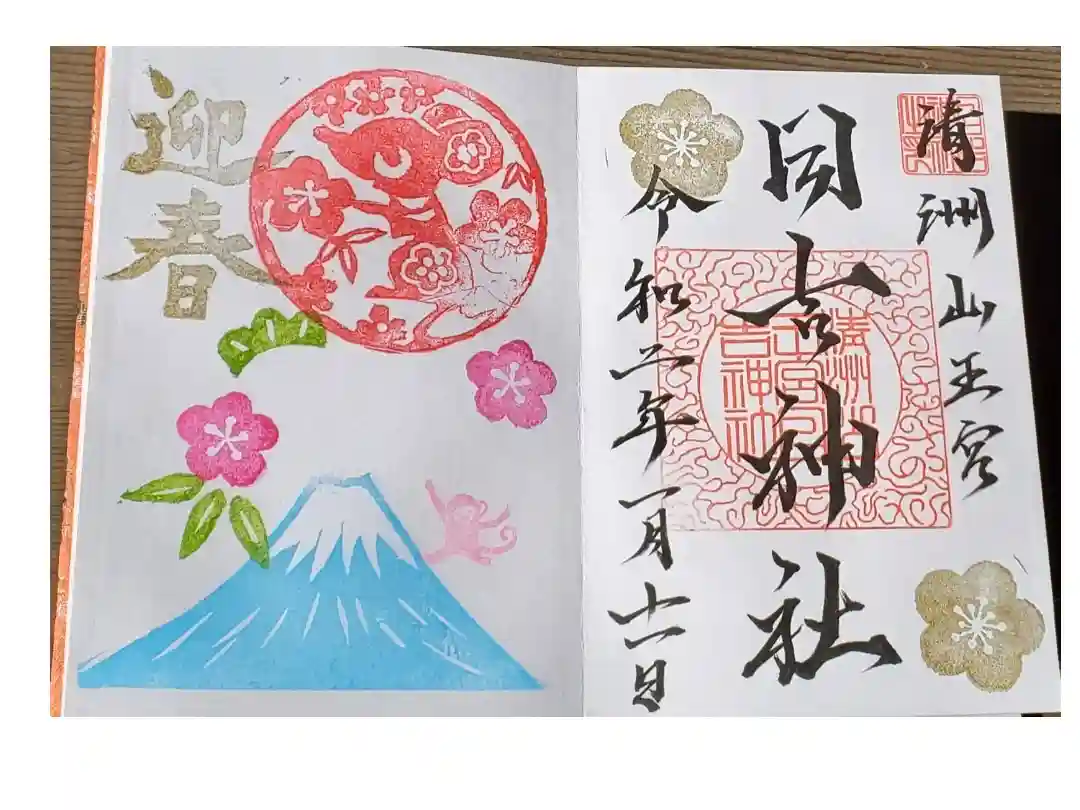 清洲山王宮
日吉神社
清洲山
王宮日
吉神社
令和二年一月十一日
迎春